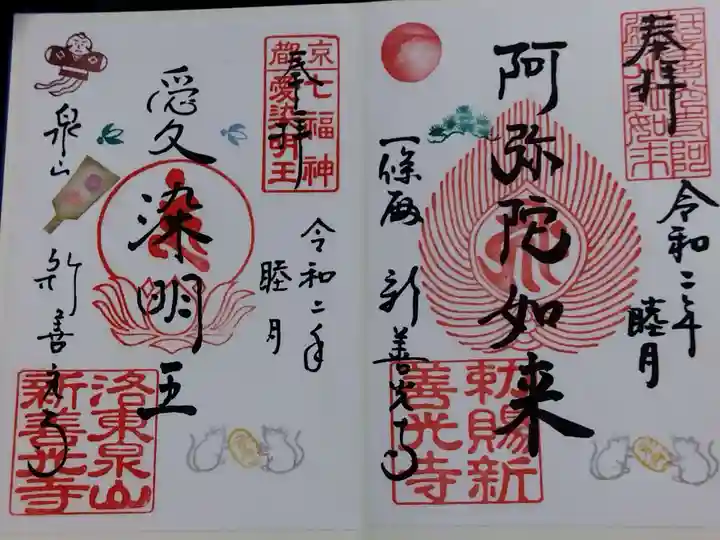 奉拝
令和二年
睦月
阿弥陀如来
一條殿 新善光寺
勅賜新
善光寺
奉拝
京
都
七福神
愛染明王
令和二年
睦月
愛染明王
泉山 新善光寺
洛東泉山
新善光寺